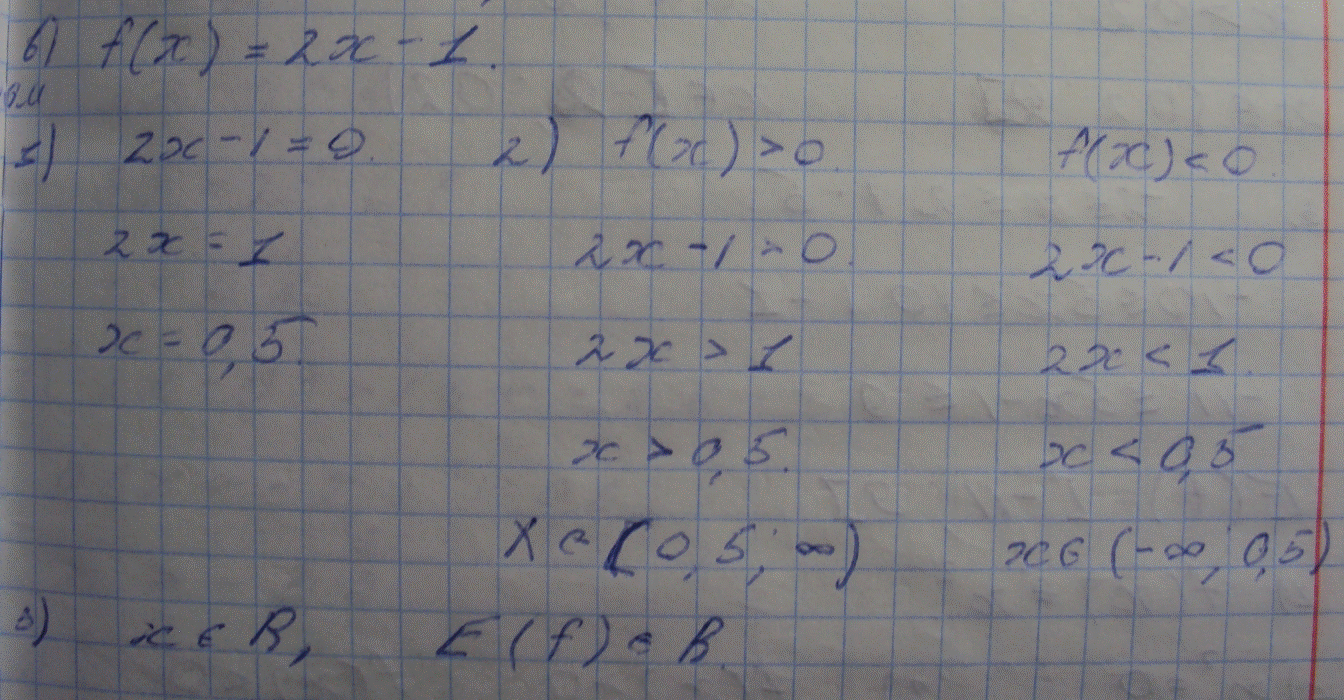 б) f(x) = 2x - 1.
1) 2x - 1 = 0. 2) f(x) > 0. f(x) < 0.
2x = 1 2x - 1 > 0. 2x - 1 < 0
x = 0,5. 2x > 1 2x < 1.
x > 0,5. x < 0,5
X ∈ (0,5; ∞) x ∈ (-∞; 0,5)
3) x ∈ R, E(f) ∈ R.